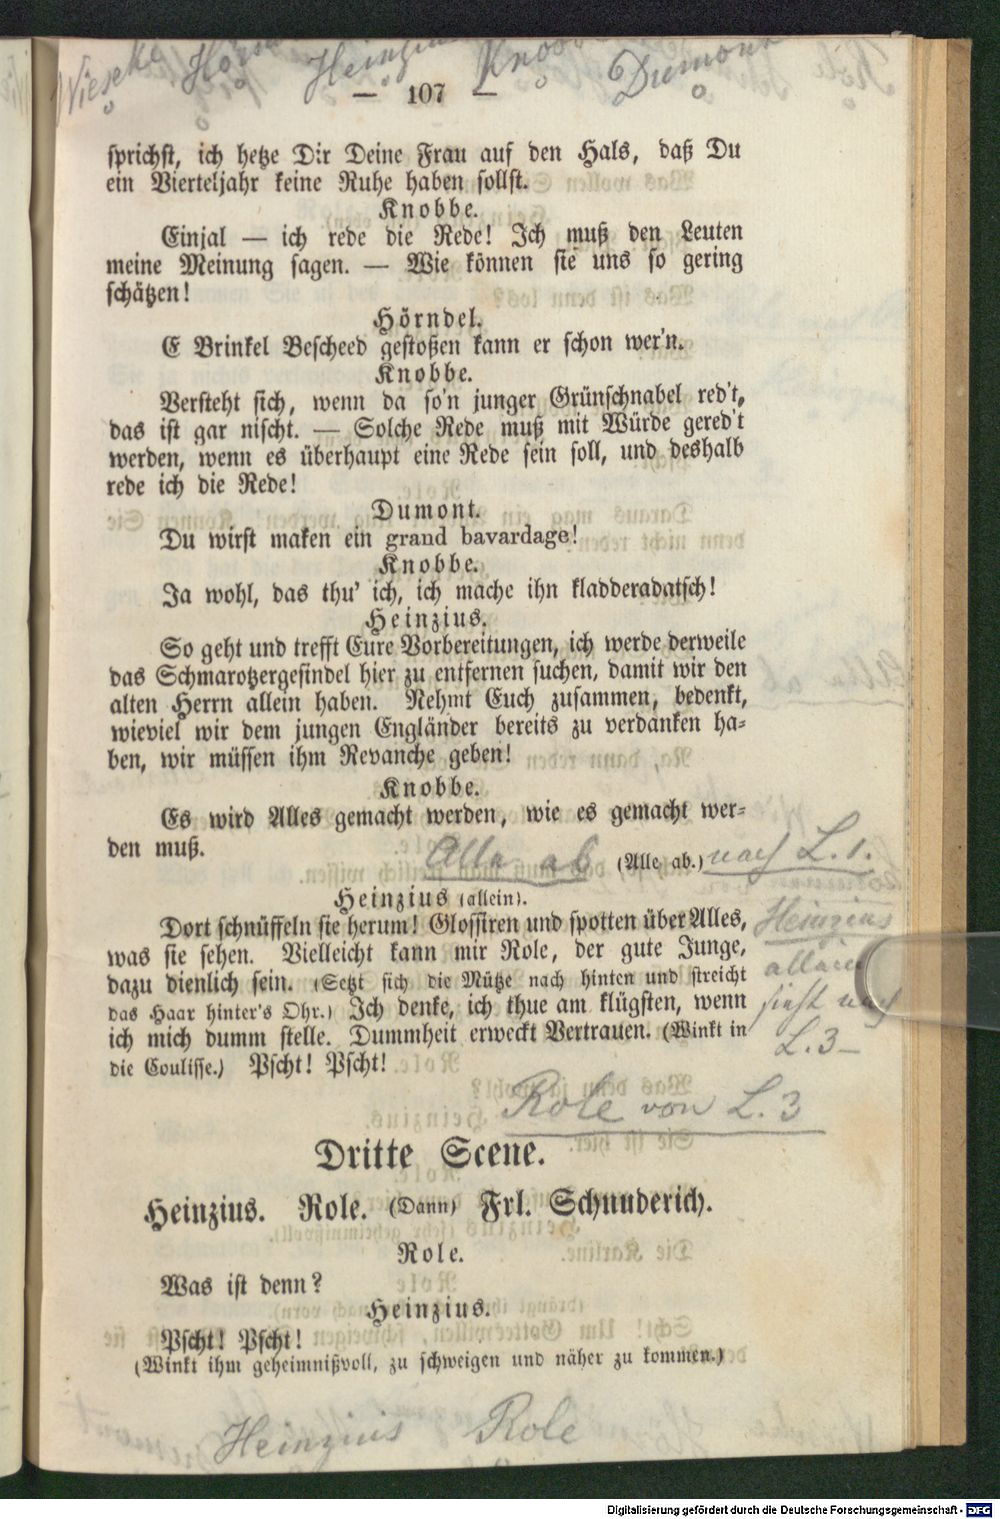 Wieseke Hörn Heinzius Knobbe Dumont
— 107 —
sprichst, ich hetze Dir Deine Frau auf den Hals, daß Du
ein Vierteljahr keine Ruhe haben sollst.
Knobbe.
Einjal — ich rede die Rede! Ich muß den Leuten
meine Meinung sagen. — Wie können sie uns so gering
schätzen!
Hörndel.
E Brinkel Bescheed gestoßen kann er schon wer'n.
Knobbe.
Versteht sich, wenn da so'n junger Grünschnabel red't,
das ist gar nischt. — Solche Rede muß mit Würde gered't
werden, wenn es überhaupt eine Rede sein soll, und deshalb
rede ich die Rede!
Dumont.
Du wirst maken ein grand bavardage!
Knobbe.
Ja wohl, das thu' ich, ich mache ihn kladderadatsch!
Heinzius.
So geht und trefft Eure Vorbereitungen, ich werde derweile
das Schmarotzergesindel hier zu entfernen suchen, damit wir den
alten Herrn allein haben. Nehmt Euch zusammen, bedenkt,
wieviel wir dem jungen Engländer bereits zu verdanken ha-
ben, wir müssen ihm Revanche geben!
Knobbe.
Es wird Alles gemacht werden, wie es gemacht wer-
den muß.
Alle ab (Alle ab.) nach L. 1.
Heinzius (allein).
Dort schnüffeln sie herum! Glossiren und spotten über Alles,
was sie sehen. Vielleicht kann mir Role, der gute Junge,
dazu dienlich sein. (Setzt sich die Mütze nach hinten und streicht
das Haar hinter's Ohr.) Ich denke, ich thue am klügsten, wenn
ich mich dumm stelle. Dummheit erweckt Vertrauen. (Winkt in
die Coulisse.) Pscht! Pscht!
Heinzius
allein
sieht nach
L. 3 –
Role von L. 3
Dritte Scene.
Heinzius. Role. (Dann) Frl. Schnuderich.
Role.
Was ist denn?
Heinzius.
Pscht! Pscht!
(Winkt ihm geheimnißvoll, zu schweigen und näher zu kommen.)
Heinzius Role
Digitalisierung gefördert durch die Deutsche Forschungsgemeinschaft - DFG